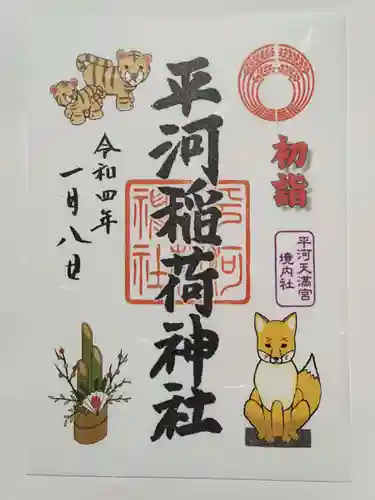 初詣
平河天満宮
境内社
平河稲荷神社
令和四年
一月八日